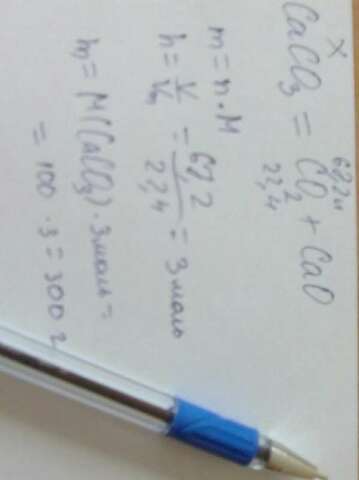 x 67,2 л
CaCO₃ = CO₂ + CaO
22,4
m = n · M
n = V/Vm = 67,2/22,4 = 3 моль
m = M(CaCO₃) · 3 моль =
= 100 · 3 = 300 г